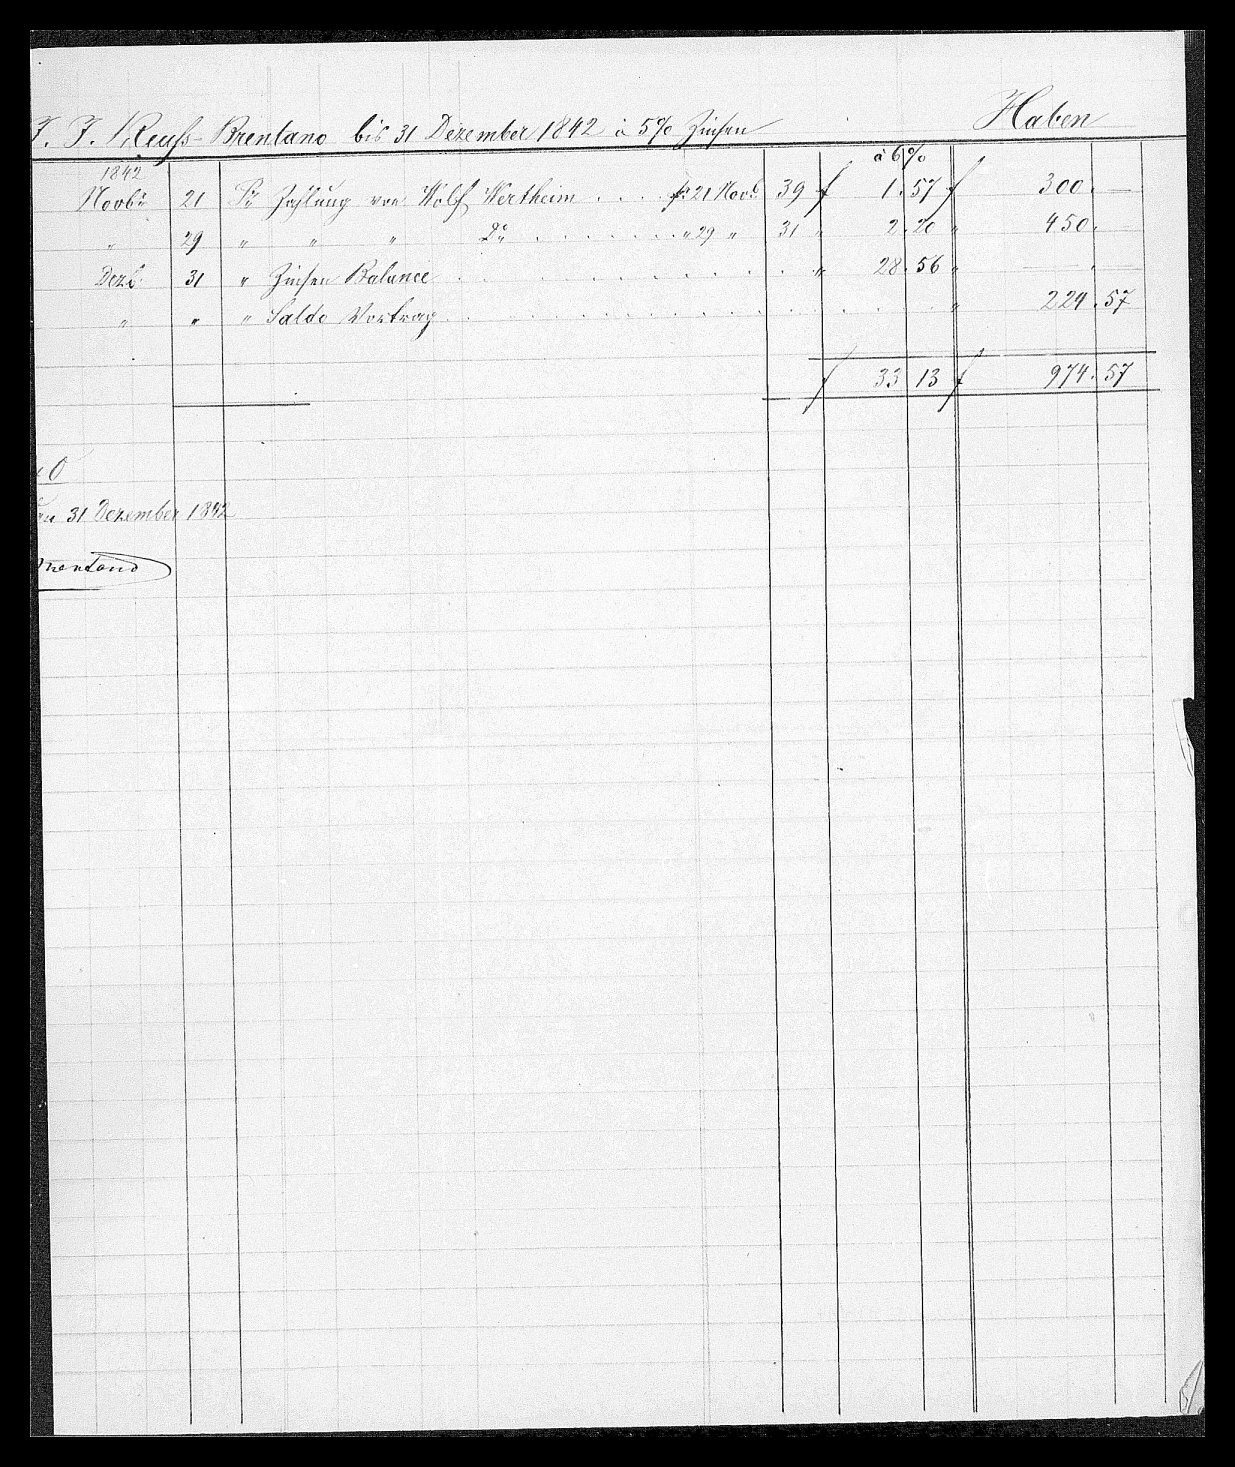 J. J. Reuß-Brentano bis 31 Dezember 1842 à 5% Zinsen Haben
à 6%
1842
Novbr 21 Pr Zahlung von Wolf Wertheim . . . . pr 21 Novb. 39 f 1.57 f 300. —
" 29 " " " Do . . . . . . . " 29 " 31 " 2.20 " 450. —
Dezb. 31 " Zinsen Balance . . . . . . . . . . " 28.56 " — . —
" " " Saldo Vortrag . . . . . . . . . . . . . . " 224.57
f 33 13 f 974.57
O
31 Dezember 1842
rentano